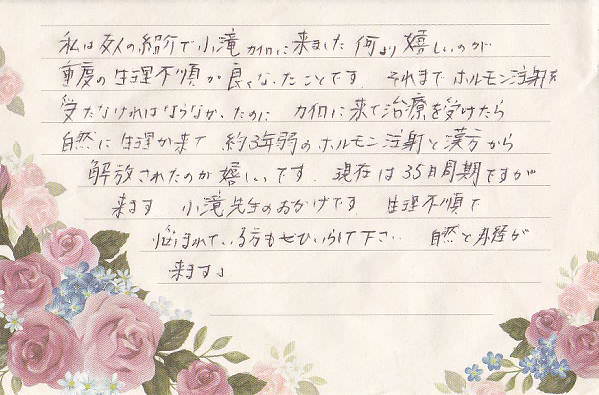 私は友人の紹介で小滝カイロに来ました 何より嬉しいのが
重度の生理不順が良くなったことです。それまでホルモン注射を
受けなければならなかったのに カイロに来て治療を受けたら
自然に生理が来て 約3年弱のホルモン注射と漢方から
解放されたのが嬉しいです。現在は35日周期ですが
来ます 小滝先生のおかげです 生理不順で
悩まれている方もぜひいらして下さい 自然と月経が
来ます」